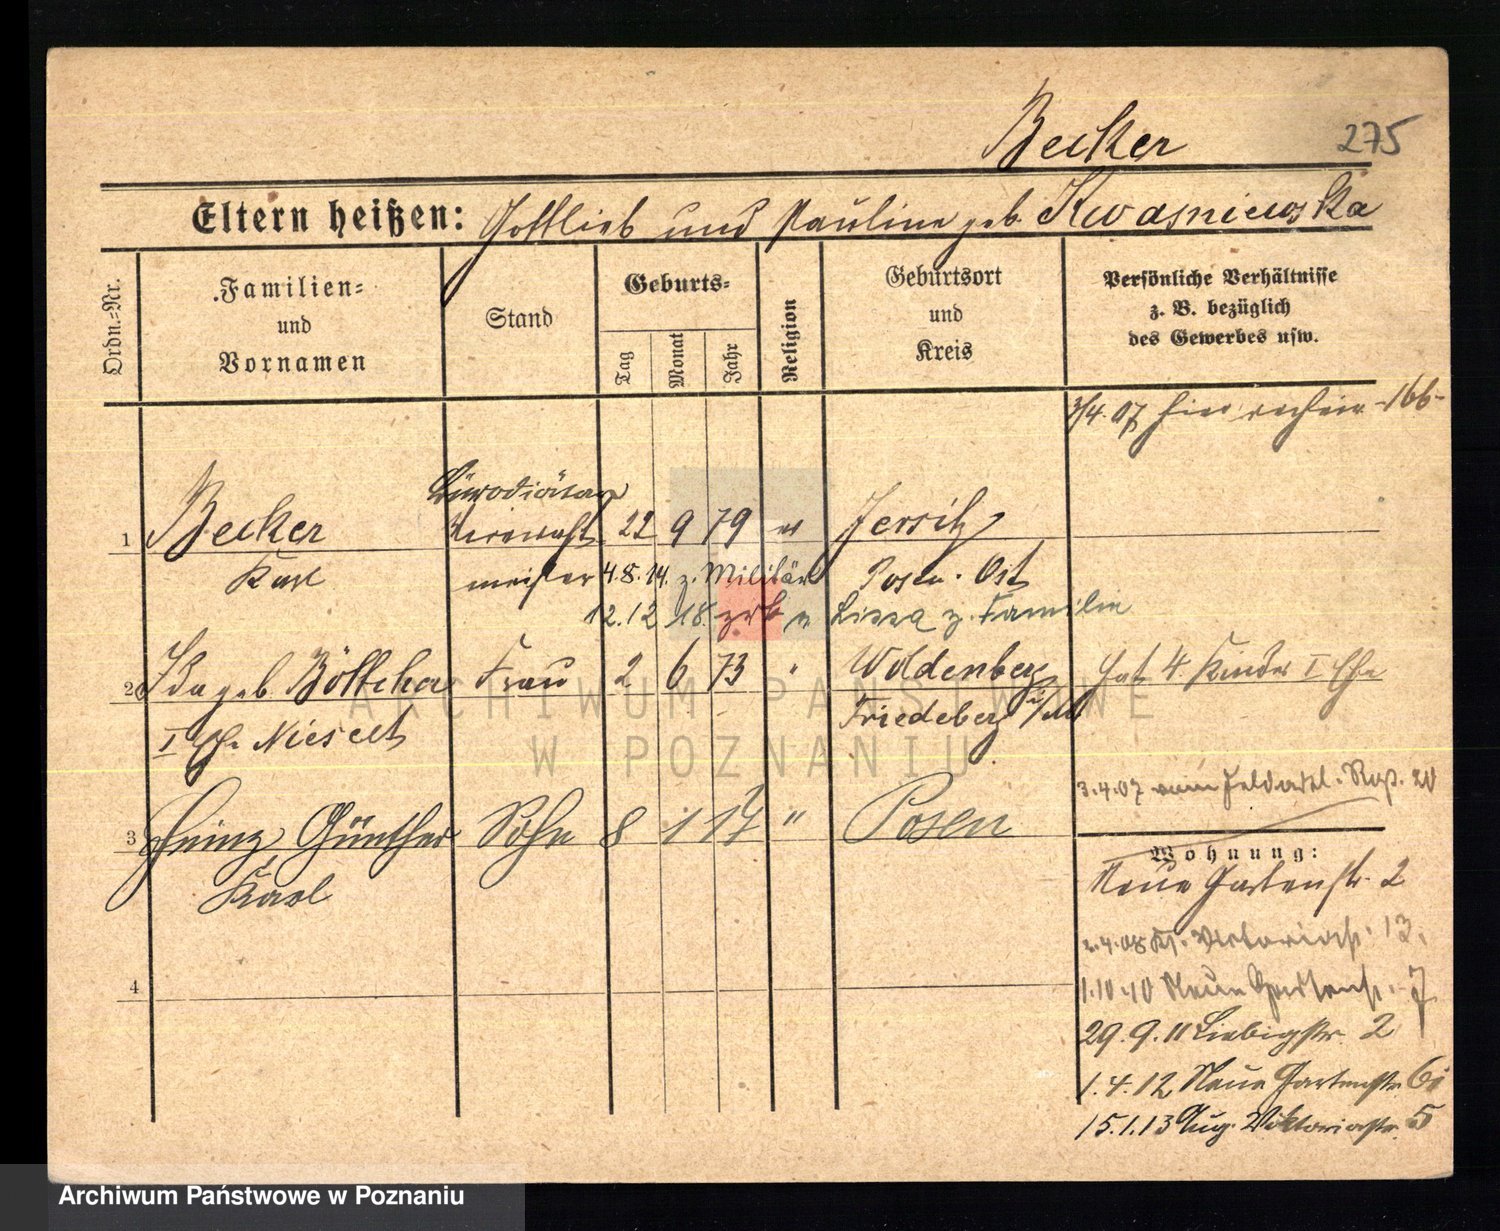 Becker
275
Eltern heißen: Gottlieb und Pauline geb. Kwasniewska
Ordn.-Nr.
Familien- und Vornamen
Stand
Geburts-
Tag
Monat
Jahr
Religion
Geburtsort und Kreis
Persönliche Verhältnisse z. B. bezüglich des Gewerbes usw.
4. 07 hier
Bürodiätar
1 Becker 22 9 79 Jersitz
Karl meister 4.8.14. z. Militär Posen. Ost
12.12 18. zrk v Lissa z. Familie
2 Ida geb Böttcher Frau 2 6 73 " Woldenberg Hat 4 Kinder I Ehe
I Ehe Nieselt Friedeberg
3.4.07
3 Heinz, Günther Sohn 8 1 17 " Posen
Karl
Wohnung:
Neue Gartenstr. 2
2.4.08 Victoriastr. 13.
1.10.10 Neue Gartenstr. 7
29.9.11 Liebigstr. 2
1.4.12 Neue Gartenstr.
15.1.13 Aug. Viktoriastr. 5
4
ARCHIWUM PAŃSTWOWE
W POZNANIU
Archiwum Państwowe w Poznaniu